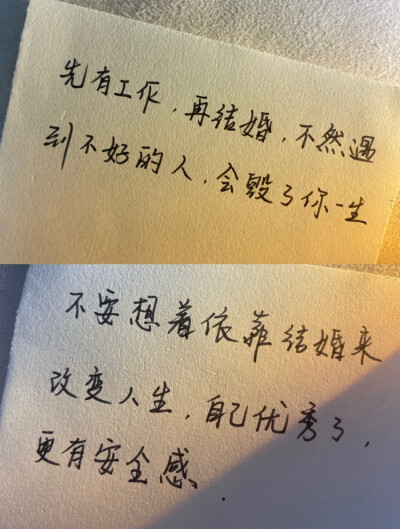 先有工作，再结婚，不然遇
到不好的人，会毁了你一生
不要想着依靠结婚来
改变人生，自己优秀了，
更有安全感、